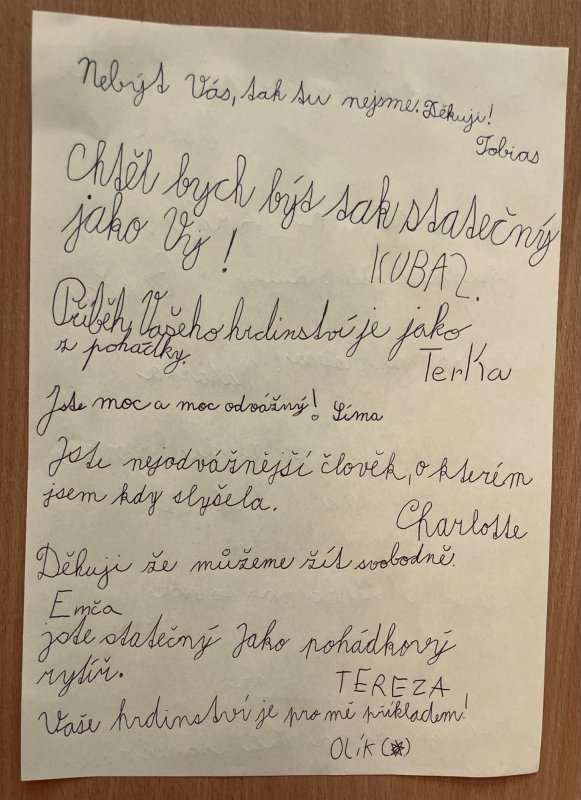 Nebýt Vás, tak tu nejsme. Děkuji!
Tobias
Chtěl bych být tak statečný
jako Vy!
KUBA Z.
Příběh Vašeho hrdinství je jako
z pohádky.
Terka
Jste moc a moc odvážný! Síma
Jste nejodvážnější člověk, o kterém
jsem kdy slyšela.
Charlotte
Děkuji že můžeme žít svobodně.
Emča
jste statečný Jako pohádkový
rytíř.
TEREZA
Vaše hrdinství je pro mě příkladem!
OLÍK (*)